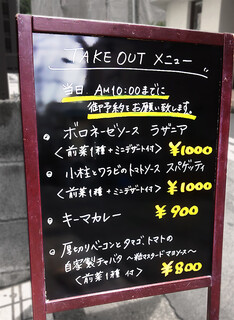 TAKE OUT メニュー
当日 AM10:00までに
御予約をお願い致します。
• ボロネーゼソース ラザニア
<前菜1種+ミニデザート付> ¥1000
• 小柱とワラビのトマトソース スパゲッティ
<前菜1種+ミニデザート付> ¥1000
• キーマカレー ¥900
• 厚切りベーコンとタマゴ、トマトの
自家製チャバタ 〜粒マスタードマヨソース〜
<前菜1種 付> ¥800